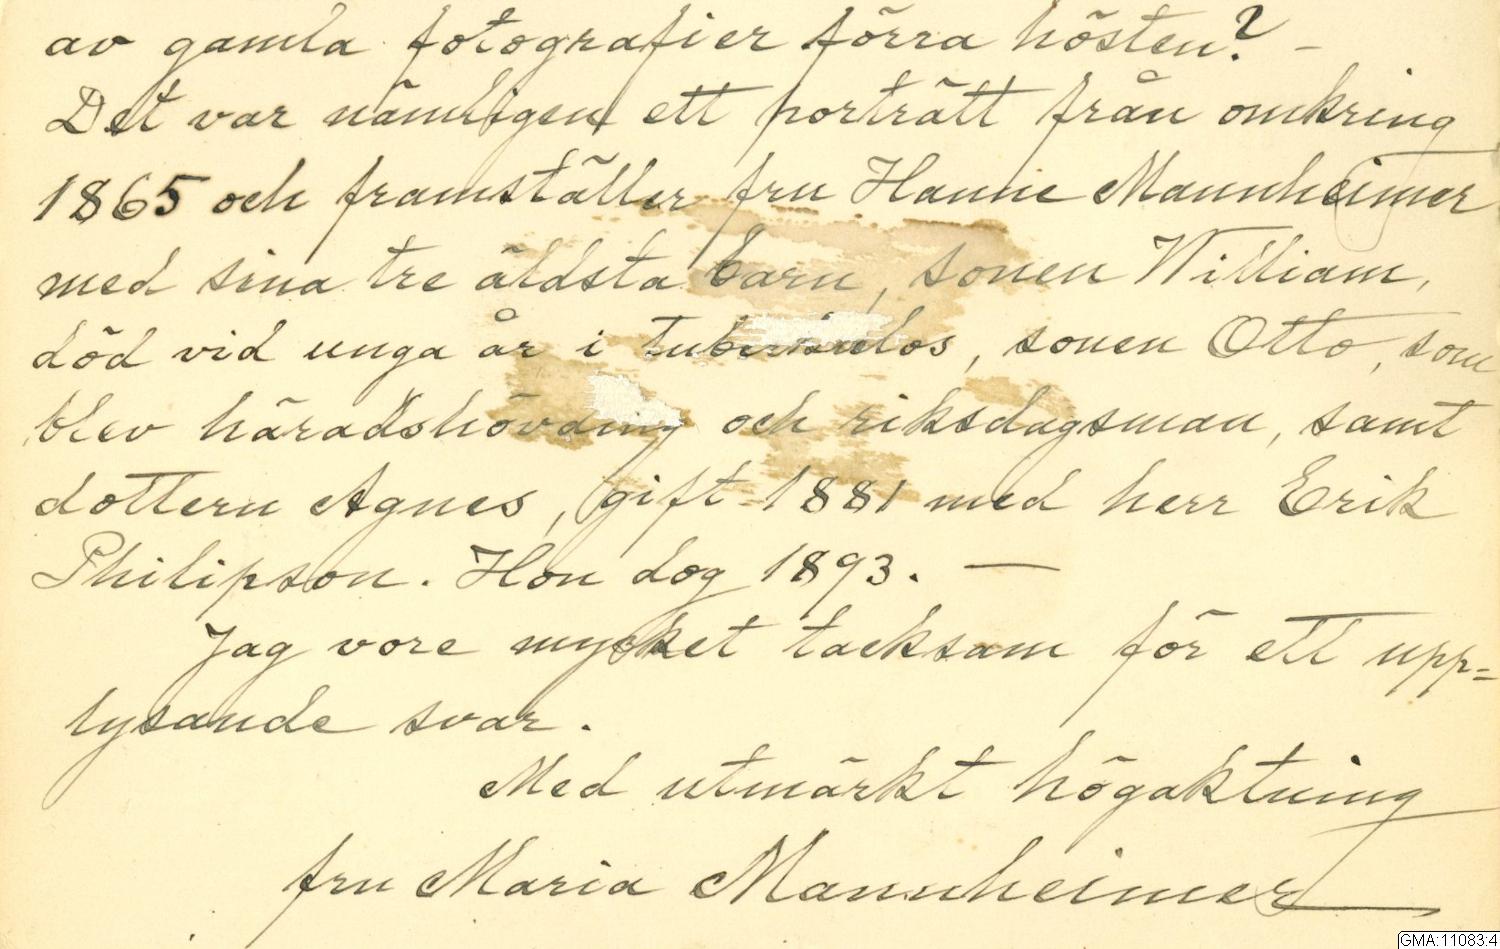 av gamla fotografier förra hösten? –
Det var nämligen ett porträtt från omkring
1865 och framställer fru Hanne Mannheimer
med sina tre äldsta barn, sonen William,
död vid unga år i tuberkulos, sonen Otto, som
blev häradshövding och riksdagsman, samt
dottern Agnes, gift 1881 med herr Erik
Philipson. Hon dog 1893. —
Jag vore mycket tacksam för ett upp=
lysande svar.
Med utmärkt högaktning
fru Maria Mannheimer
GMA:11083:4